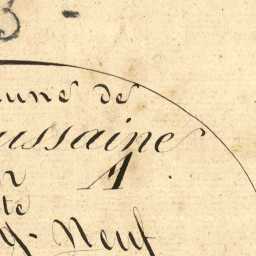 3
une de
ussaine
n A
te
g-Neuf